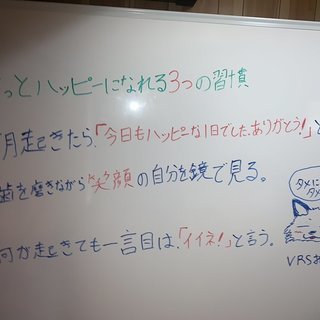 っとハッピーになれる3つの習慣
起きたら、「今日もハッピーな1日でした。ありがとう!」と
歯を磨きながら笑顔の自分を鏡で見る。
何が起きても一言目は、「イイネ!」と言う。
タメに
タメ
VRSお